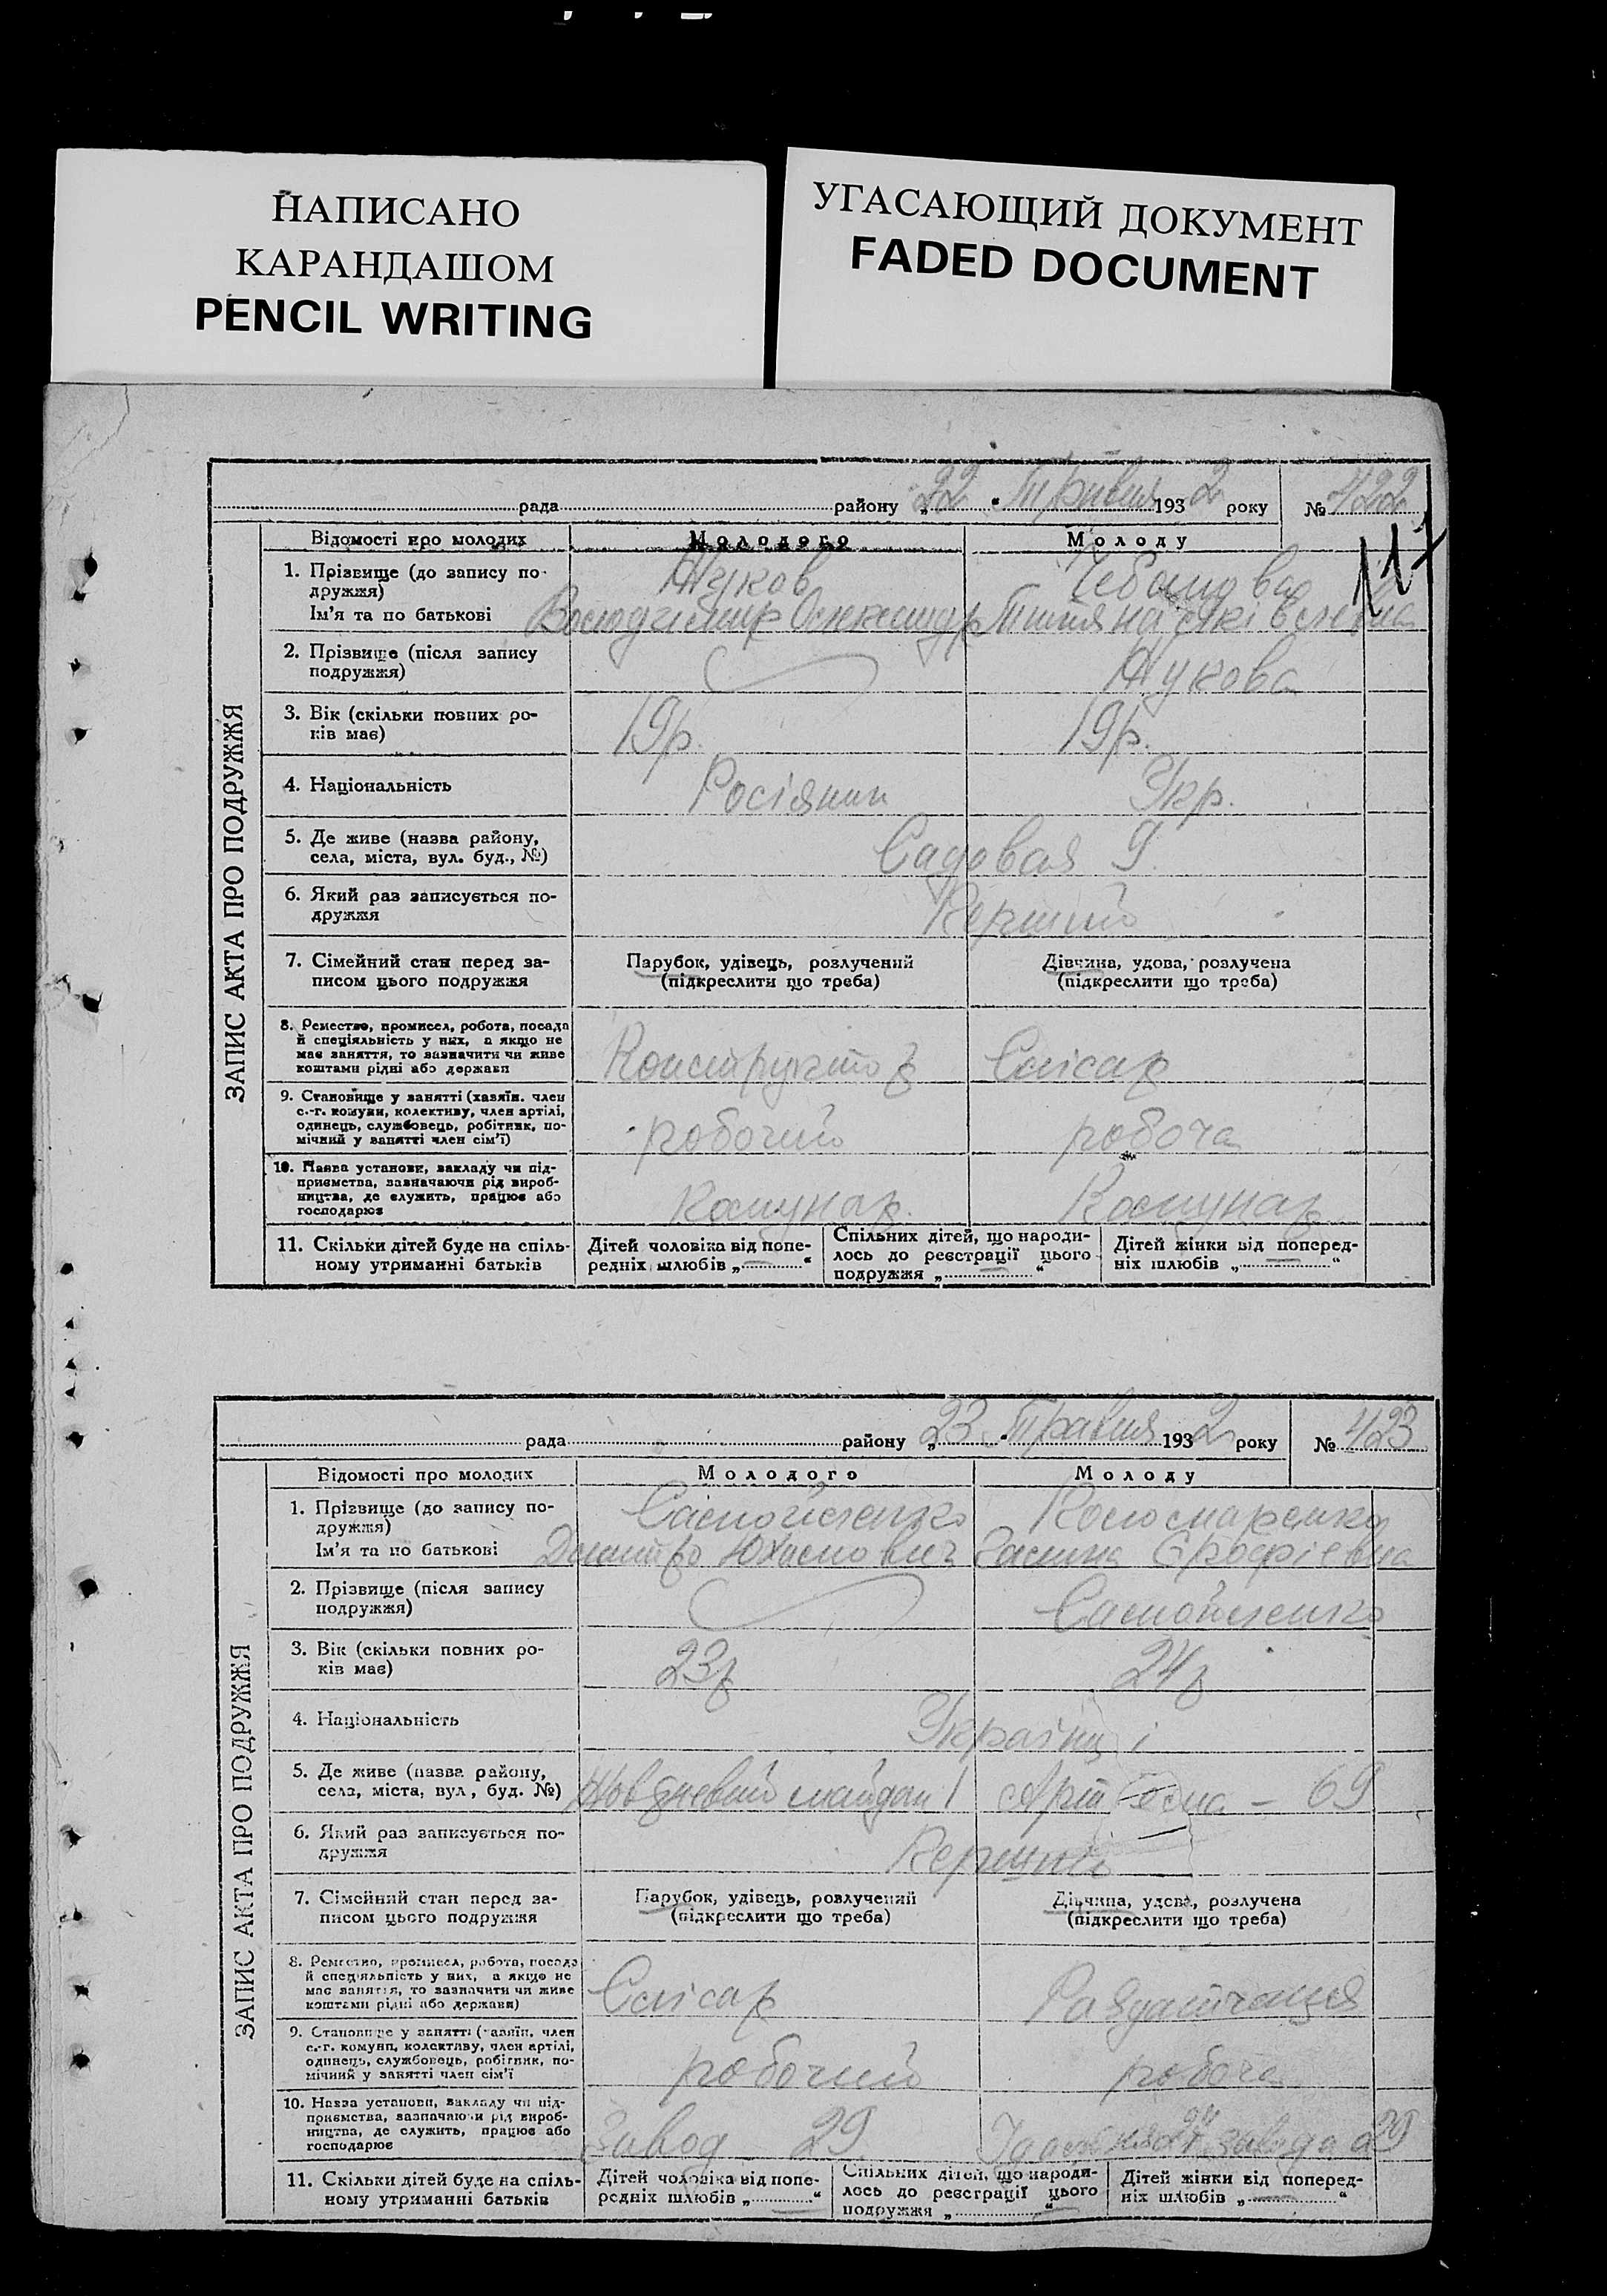 НАПИСАНО
КАРАНДАШОМ
PENCIL WRITING
УГАСАЮЩИЙ ДОКУМЕНТ
FADED DOCUMENT
рада району „22“ Травня 1932 року № 422
ЗАПИС АКТА ПРО ПОДРУЖЖЯ
Відомості про молодих Молодого Молоду
1. Прізвище (до запису по-
дружжя) Жуков
Ім'я та по батькові Володимир Олександр
2. Прізвище (після запису
подружжя) Жукова
3. Вік (скільки повних ро-
ків має) 19р. 19р.
4. Національність Росіянин Укр.
5. Де живе (назва району,
села, міста, вул. буд., №) Садовая 9
6. Який раз записується по-
дружжя Перший
7. Сімейний стан перед за-
писом цього подружжя
Парубок, удівець, розлучений
(підкреслити що треба)
Дівчина, удова, розлучена
(підкреслити що треба)
8. Ремество, промисел, робота, посада
й спеціяльність у них, а якщо не
має заняття, то зазначити чи живе
коштами рідні або держави
Конструктор Слісар
9. Становище у занятті (хазяїн, член
с.-г. комуни, колективу, член артілі,
одинець, службовець, робітник, по-
мічний у занятті член сім'ї)
робочий робоча
10. Назва установи, закладу чи під-
приємства, зазначаючи рід вироб-
ництва, де служить, працює або
господарює
Комунар. Комунар
11. Скільки дітей буде на спіль-
ному утриманні батьків
Дітей чоловіка від попе-
редніх шлюбів „—“
Спільних дітей, що народи-
лось до реєстрації цього
подружжя „—“
Дітей жінки від поперед-
ніх шлюбів „—“
рада району „23“ Травня 1932 року № 423
ЗАПИС АКТА ПРО ПОДРУЖЖЯ
Відомості про молодих Молодого Молоду
1. Прізвище (до запису по-
дружжя) Самойленко
Ім'я та по батькові Дмитро Юхимович Галина Єрофіевна
2. Прізвище (після запису
подружжя) Самойленко
3. Вік (скільки повних ро-
ків має) 23р 24р
4. Національність Українці
5. Де живе (назва району,
села, міста, вул, буд. №) Жовтневий майдан 1 – 69
6. Який раз записується по-
дружжя Перший
7. Сімейний стан перед за-
писом цього подружжя
Парубок, удівець, розлучений
(підкреслити що треба)
Дівчина, удова, розлучена
(підкреслити що треба)
8. Ремество, промисел, робота, посада
й спеціяльність у них, а якщо не
має заняття, то зазначити чи живе
коштами рідні або держави)
Слісар
9. Становище у занятті (хазяїн, член
с.-г. комуни, колективу, член артілі,
одинець, службовець, робітник, по-
мічний у занятті член сім'ї
робочий робоча
10. Назва установи, закладу чи під-
приємства, зазначаючи рід вироб-
ництва, де служить, працює або
господарює
Завод 29 завода 29
11. Скільки дітей буде на спіль-
ному утриманні батьків
Дітей чоловіка від попе-
редніх шлюбів „—“
Спільних дітей, що народи-
лось до реєстрації цього
подружжя „—“
Дітей жінки від поперед-
ніх шлюбів „—“